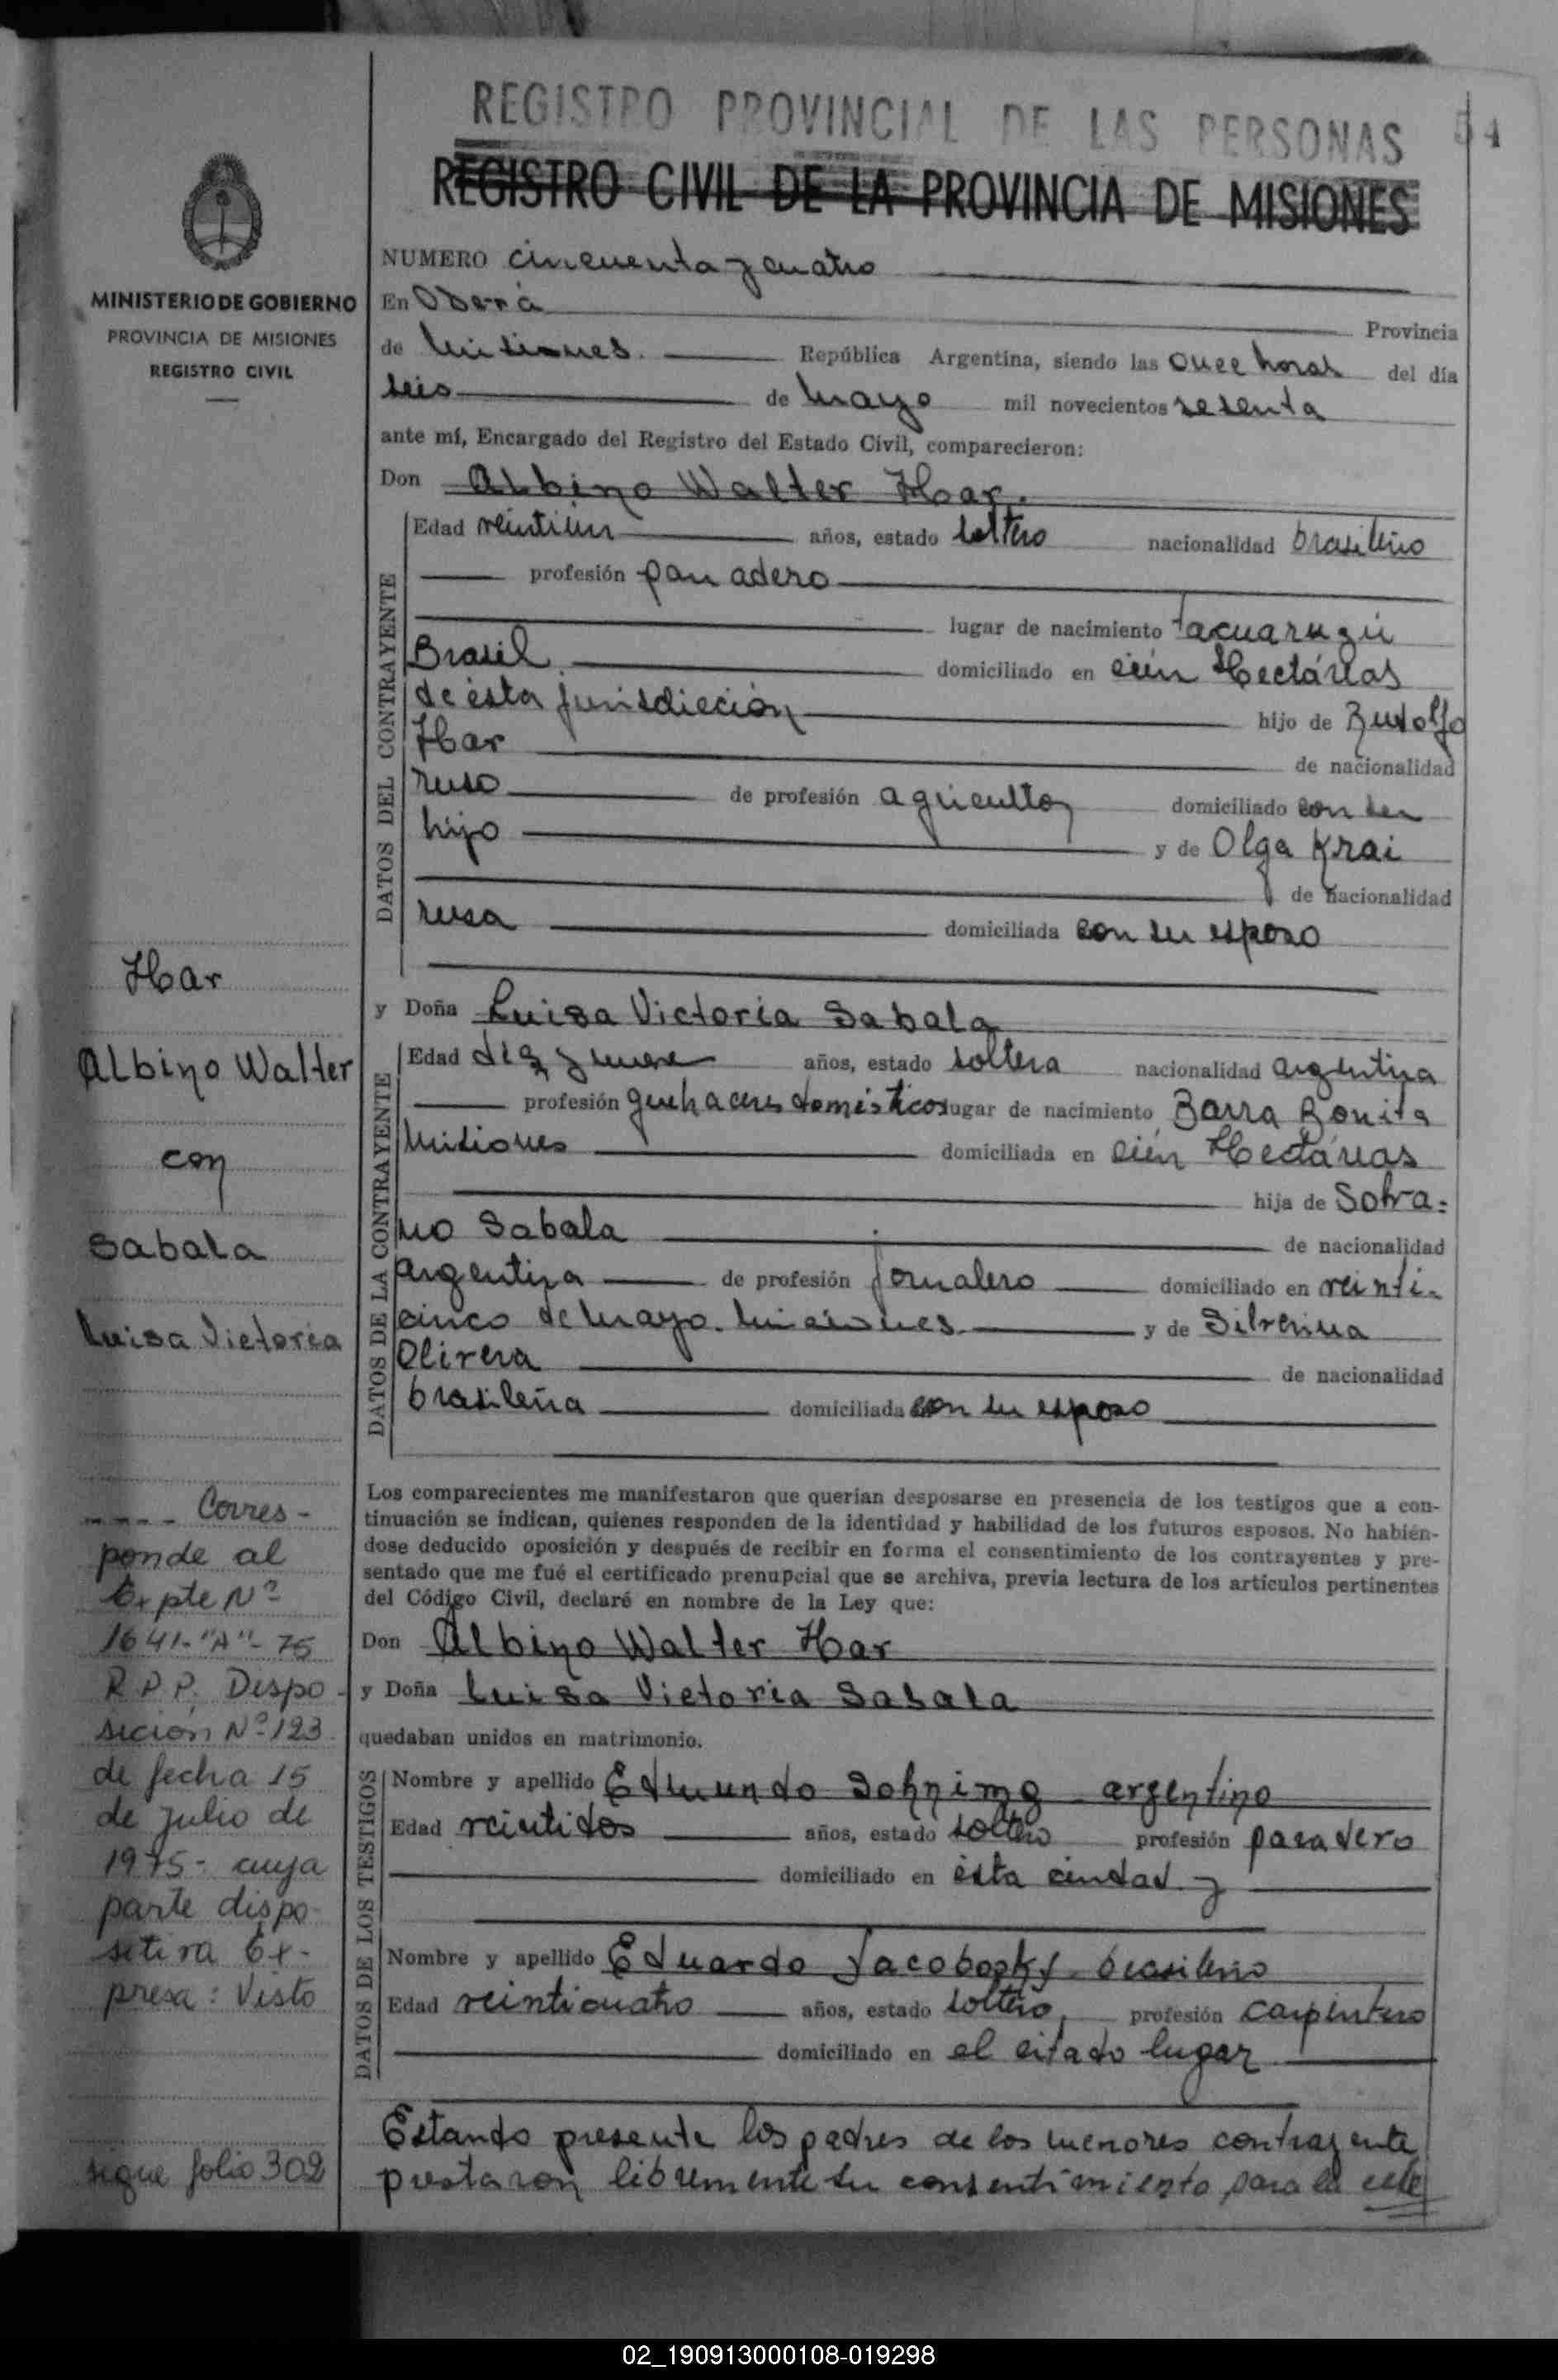 REGISTRO PROVINCIAL DE LAS PERSONAS 54
REGISTRO CIVIL DE LA PROVINCIA DE MISIONES
MINISTERIO DE GOBIERNO
PROVINCIA DE MISIONES
REGISTRO CIVIL
NUMERO cincuenta y cuatro
En Oberá Provincia
de Misiones. República Argentina, siendo las once horas del día
seis de mayo mil novecientos sesenta
ante mí, Encargado del Registro del Estado Civil, comparecieron:
Don Albino Walter Har.
DATOS DEL CONTRAYENTE
Edad veintiún años, estado soltero nacionalidad brasileño
profesión panadero
lugar de nacimiento Tacuaruzú
Brasil domiciliado en cién Hectáreas
de ésta jurisdicción hijo de Rudolfo
Har de nacionalidad
ruso de profesión agricultor domiciliado con su
hijo y de Olga Krai
de nacionalidad
rusa domiciliada con su esposo
y Doña Luisa Victoria Sabala
DATOS DE LA CONTRAYENTE
Edad diez y nueve años, estado soltera nacionalidad argentina
profesión quehaceres domésticos lugar de nacimiento Barra Bonita
Misiones domiciliada en cién Hectáreas
hija de Sotra=
no Sabala de nacionalidad
argentina de profesión jornalero domiciliado en veinti-
cinco de Mayo. Misiones. y de Silvenia
Olivera de nacionalidad
brasileña domiciliada con su esposo
Los comparecientes me manifestaron que querían desposarse en presencia de los testigos que a con-
tinuación se indican, quienes responden de la identidad y habilidad de los futuros esposos. No habién-
dose deducido oposición y después de recibir en forma el consentimiento de los contrayentes y pre-
sentado que me fué el certificado prenupcial que se archiva, previa lectura de los artículos pertinentes
del Código Civil, declaré en nombre de la Ley que:
Don Albino Walter Har
y Doña Luisa Victoria Sabala
quedaban unidos en matrimonio.
DATOS DE LOS TESTIGOS
Nombre y apellido Edmundo Sohnimg argentino
Edad veintidos años, estado soltero profesión panadero
domiciliado en ésta ciudad y
Nombre y apellido Eduardo Jacobosky. brasileño
Edad veinticuatro años, estado soltero, profesión carpintero
domiciliado en el citado lugar
Estando presente los padres de los menores contrayente
prestaron libremente su consentimiento para la cele
Har
Albino Walter
con
Sabala
Luisa Victoria
---- Corres-
ponde al
Expte Nº
1641-"A"-75
R.P.P. Dispo-
sición Nº 123
de fecha 15
de julio de
1975- cuya
parte dispo-
sitiva Ex-
presa: Visto
sigue folio 302
02_190913000108-019298